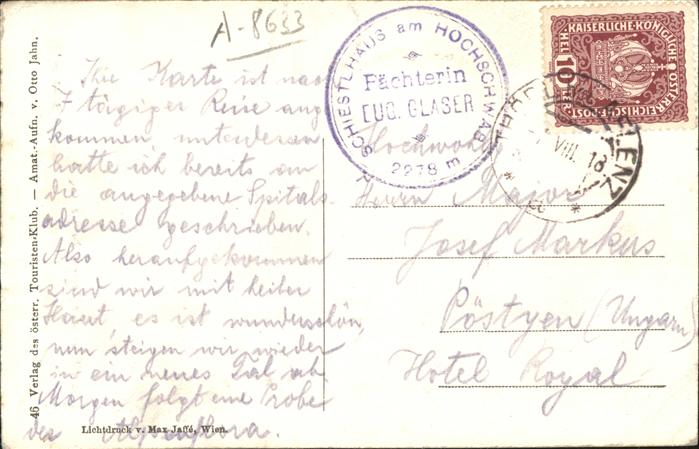 A-8633
Ihre Karte ist nach
7 tägiger Reise ange
kommen, unterdessen
hatte ich bereits an
die angegebene Spitals
adresse geschrieben.
Also heraufgekommen
sind wir mit heiler
Haut, es ist wunderschön,
nun steigen wir wieder
in ein neues Tal ab
Morgen folgt eine Probe
der Alpenflora.
Lichtdruck v. Max Jaffé, Wien.
46 Verlag des österr. Touristen-Klub. — Amat.-Aufn. v. Otto Jahn.
SCHIESTLHAUS am HOCHSCHWAB
Pächterin
EUG. GLASER
2278 m
KAISERLICHE KÖNIGLICHE
ÖSTERREICHISCHE POST
HELLER 10
VIII. 18
Hochwohl
Herrn Major
Josef Markus
Pöstyen (Ungarn)
Hotel Royal